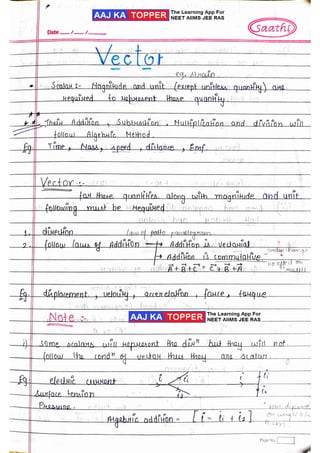 AAJ KA TOPPER The Learning App For
NEET AIIMS JEE RAS
Saathi
Date
Vector
eg. strain
Scalar :- Magnitude and unit (except unitless quantity) are
required to represent these quantity.
Their Addition, Substraction, Multiplication and division will
follow Algebric Method.
Eg Time, Mass, speed, distance, Emf.
Vector :-
for these quantities along with magnitude and unit
following must be required
1. direction
2. follow laws of Addition → Addition is vectorial
→ Addition is commutative
A + B + C = C + B + A
no effect on
Eg. displacement, velocity, acceleration, force, torque
Note :-
AAJ KA TOPPER The Learning App For
NEET AIIMS JEE RAS
i) some scalars will represent the dirⁿ but they will not
follow the condⁿ of vector thus they are scalar.
Eg electric current i i₁ i₂
Surface tension
Pressure
Algebric addition = [i = i₁ + i₂]
not depend
Page No.